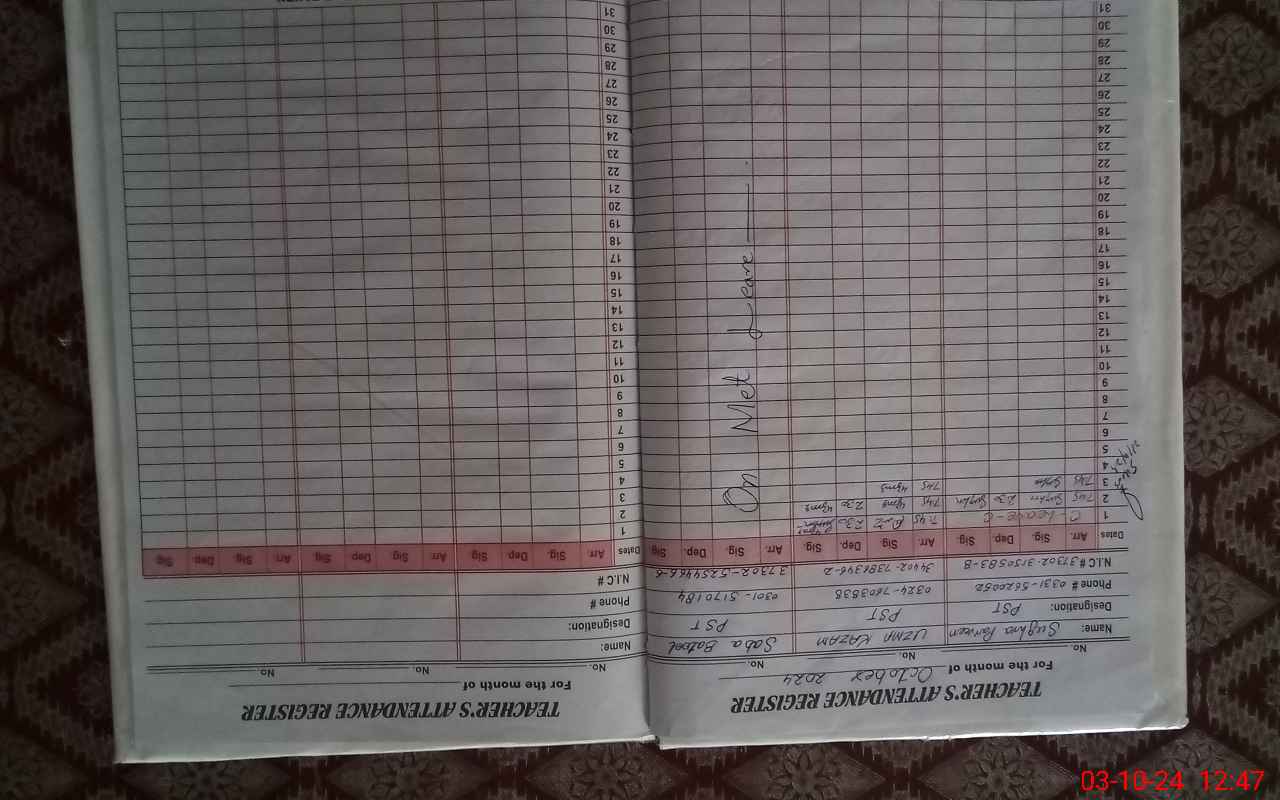 TEACHER'S ATTENDANCE REGISTER
For the month of October 2024
No. No. No.
Name: Sughra Parveen UZMA KAZAM Saba Batool
Designation: PST PST PST
Phone # 0331-5620052 0324-7603838 0301-5170184
N.I.C # 37302-3150583-8 34402-7386346-2 37302-5254466-6
Dates Arr. Sig. Dep. Sig. Arr. Sig. Dep. Sig. Arr. Sig. Dep. Sig.
1 C Leave-C 7:45 2:30
2 7:45 2:30 7:45 2:30
3 7:45 7:45
4
5
6
7
8
9
10
11
12
13
14
15
16
17
18
19
20
21
22
23
24
25
26
27
28
29
30
31
On Met Leave
TEACHER'S ATTENDANCE REGISTER
For the month of
No. No. No.
Name:
Designation:
Phone #
N.I.C #
Dates Arr. Sig. Dep. Sig. Arr. Sig. Dep. Sig. Arr. Sig. Dep. Sig.
1
2
3
4
5
6
7
8
9
10
11
12
13
14
15
16
17
18
19
20
21
22
23
24
25
26
27
28
29
30
31
03-10-24 12:47